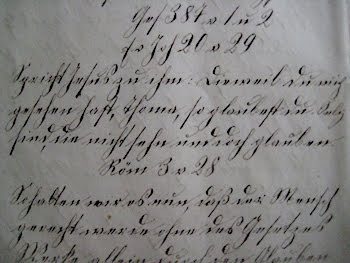 Ges 387 v 1 u 2
Ev Joh 20 v 29
Spricht Jesus zu ihm: Dieweil du mich
gesehen hast, Thoma, so glaubest du. Selig
sind, die nicht sehn und doch glauben
Röm 3 v 28
So halten wir es nun, daß der Mensch
gerecht werde ohne des Gesetzes
Werke, allein durch den Glauben